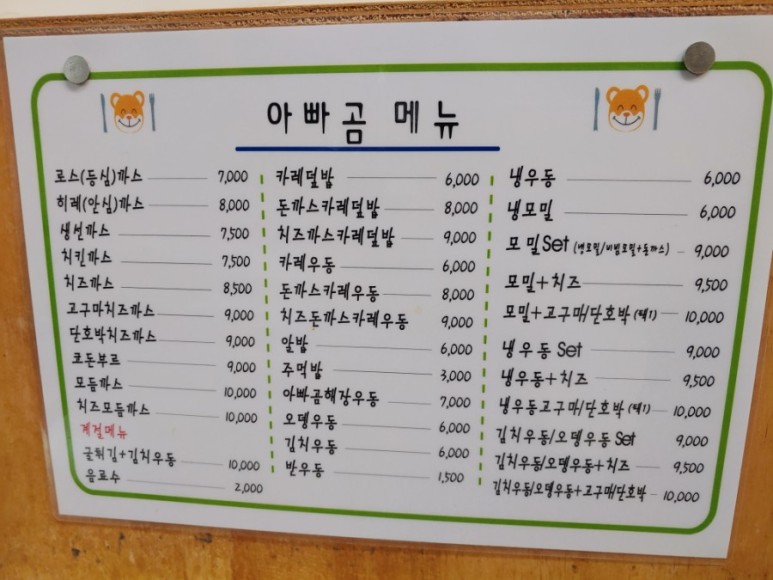 아빠곰 메뉴
로스(등심)까스 7,000
히레(안심)까스 8,000
생선까스 7,500
치킨까스 7,500
치즈까스 8,500
고구마치즈까스 9,000
단호박치즈까스 9,000
코돈부르 9,000
모듬까스 10,000
치즈모듬까스 10,000
계절메뉴
굴튀김+김치우동 10,000
음료수 2,000
카레덮밥 6,000
돈까스카레덮밥 8,000
치즈까스카레덮밥 9,000
카레우동 6,000
돈까스카레우동 8,000
치즈돈까스카레우동 9,000
알밥 6,000
주먹밥 3,000
아빠곰해장우동 7,000
오뎅우동 6,000
김치우동 6,000
반우동 1,500
냉우동 6,000
냉모밀 6,000
모밀Set (냉모밀/비빔모밀+돈까스) 9,000
모밀+치즈 9,500
모밀+고구마/단호박(택1) 10,000
냉우동 Set 9,000
냉우동+치즈 9,500
냉우동고구마/단호박(택1) 10,000
김치우동/오뎅우동 Set 9,000
김치우동/오뎅우동+치즈 9,500
김치우동/오뎅우동+고구마/단호박 10,000